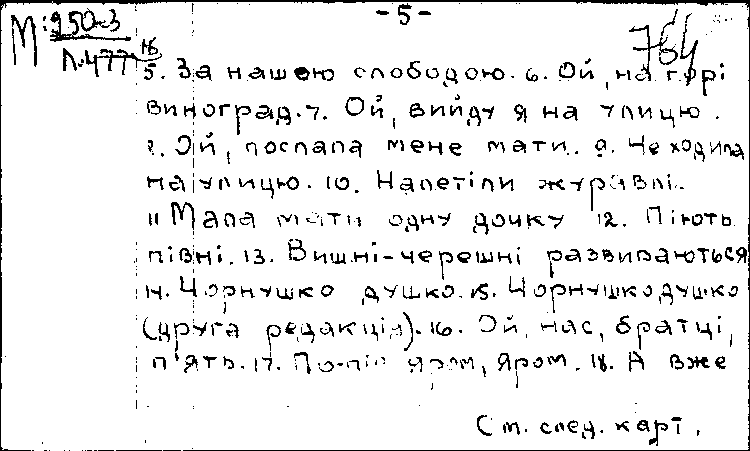 - 5 -
М: 950-3
Л.477 16
764
5. За нашею слободою. 6. Ой, на горі
виноград. 7. Ой, вийду я на улицю.
8. Ой, послала мене мати. 9. Не ходила
на улицю. 10. Налетіли журавлі.
11 Мала мати одну дочку 12. Піють
півні. 13. Вишні-черешні развиваються
14. Чорнушко душко. 15. Чорнушко душко
(друга редакція). 16. Ой, нас, братці,
п'ять. 17. По-під яром, яром. 18. А вже
См. след. карт.